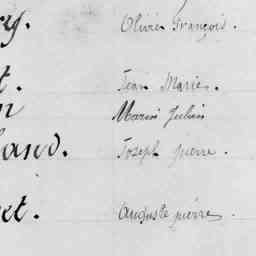 ry. Olivier François.
t. Jean Marie.
n Marin Julien
aud. Joseph pierre.
et. Auguste pierre.